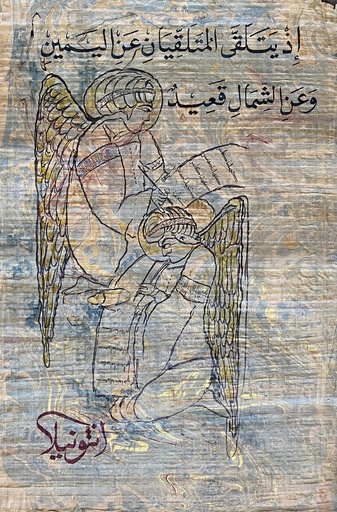 إِذْ يَتَلَقَّى الْمُتَلَقِّيَانِ عَنِ الْيَمِينِ
وَعَنِ الشِّمَالِ قَعِيدٌ
انتونيلا